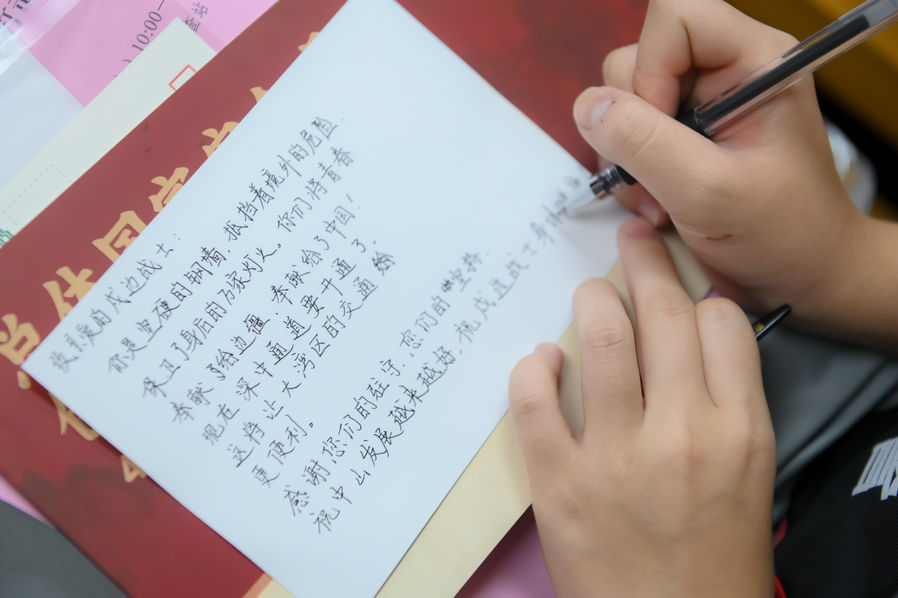 10:00一
查站
总体国家安全
敬爱的戍边战士：
你是坚硬的钢墙，抵挡着境外的危险．
保卫了身后的万家灯火，你们将青春
奉献了给边疆，奉献给了中国！
现在深中通道要开通了．
这将让大湾区的交通给
更便利。
感谢您们的驻守，您们的坚持．
祝中山发展越来越好，祝戍边战士身